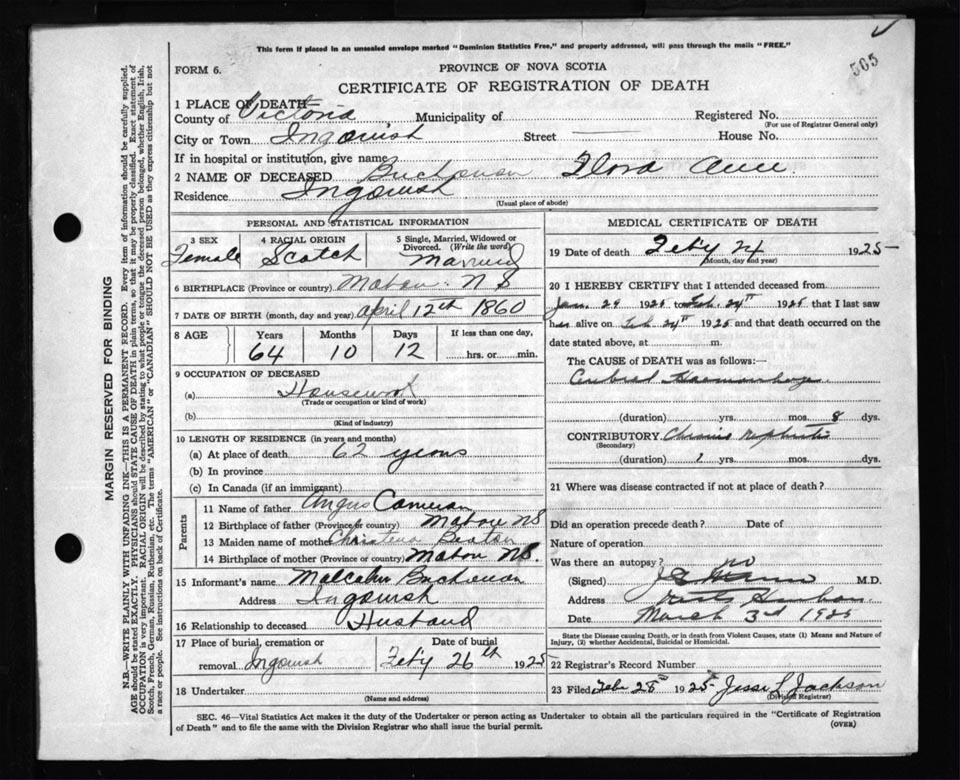 This form if placed in an unsealed envelope marked "Dominion Statistics Free," and properly addressed, will pass through the mails "FREE."
565
FORM 6.
PROVINCE OF NOVA SCOTIA
CERTIFICATE OF REGISTRATION OF DEATH
1 PLACE OF DEATH—
County of Victoria Municipality of Registered No.
(For use of Registrar General only)
City or Town Ingonish Street — House No.
If in hospital or institution, give name
2 NAME OF DECEASED Buchanan Flora Ann
Residence Ingonish
(Usual place of abode)
PERSONAL AND STATISTICAL INFORMATION
3 SEX 4 RACIAL ORIGIN 5 Single, Married, Widowed or Divorced. (Write the word)
Female Scotch Married
6 BIRTHPLACE (Province or country) Mabou N S
7 DATE OF BIRTH (month, day and year) April 12th 1860
8 AGE Years Months Days If less than one day,
64 10 12 hrs. or min.
9 OCCUPATION OF DECEASED
(a) Housework
(Trade or occupation or kind of work)
(b)
(Kind of industry)
10 LENGTH OF RESIDENCE (in years and months)
(a) At place of death 62 years
(b) In province
(c) In Canada (if an immigrant)
Parents
11 Name of father Angus Cameron
12 Birthplace of father (Province or country) Mabou NS
13 Maiden name of mother Christena Beaton
14 Birthplace of mother (Province or country) Mabou NS.
15 Informant's name Malcolm Buchanan
Address Ingonish
16 Relationship to deceased Husband
17 Place of burial, cremation or removal Ingonish Date of burial Feb'y 26th 1925
18 Undertaker
(Name and address)
MEDICAL CERTIFICATE OF DEATH
19 Date of death Feb'y 24 1925
(Month, day and year)
20 I HEREBY CERTIFY that I attended deceased from
Jan. 29 1925 to Feb. 24th 1925 that I last saw
her alive on Feb 24th 1925 and that death occurred on the
date stated above, at m.
The CAUSE of DEATH was as follows:—
Cerebral Haemorrhage
(duration) yrs. mos. 8 dys.
CONTRIBUTORY Chronic Nephritis
(Secondary)
(duration) 1 yrs. mos. dys.
21 Where was disease contracted if not at place of death?
Did an operation precede death? Date of
Nature of operation
Was there an autopsy? no
(Signed) M.D.
Address
Date March 3rd 1925
State the Disease causing Death, or in death from Violent Causes, state (1) Means and Nature of
Injury, (2) whether Accidental, Suicidal or Homicidal.
22 Registrar's Record Number
23 Filed Feb 28th 1925 Jessi L Jackson
(Division Registrar)
SEC. 46—Vital Statistics Act makes it the duty of the Undertaker or person acting as Undertaker to obtain all the particulars required in the "Certificate of Registration
of Death" and to file the same with the Division Registrar who shall issue the burial permit.
(OVER)
MARGIN RESERVED FOR BINDING
N.B.—WRITE PLAINLY WITH UNFADING INK—THIS IS A PERMANENT RECORD. Every item of information should be carefully supplied.
AGE should be stated EXACTLY. PHYSICIANS should STATE CAUSE OF DEATH in plain terms, so that it may be properly classified. Exact statement of
OCCUPATION is very important. RACIAL ORIGIN will be described by stating to what people or tongue the deceased person belonged, whether English, Irish,
Scotch, French, German, Russian, Ruthenian, etc. The terms "AMERICAN" or "CANADIAN" SHOULD NOT BE USED as they express citizenship but not
a race or people. See instructions on back of Certificate.